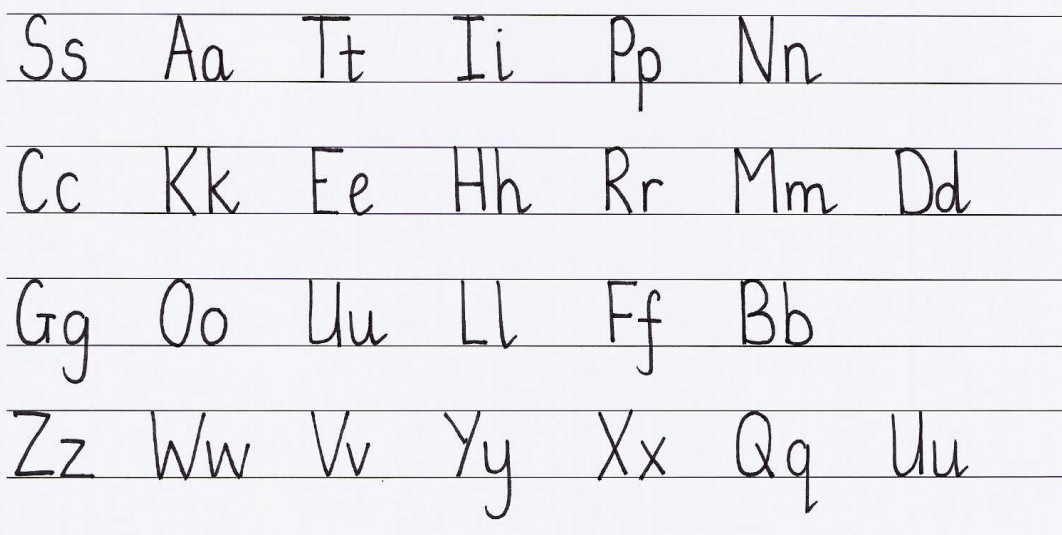 Ss Aa Tt Ii Pp Nn
Cc Kk Ee Hh Rr Mm Dd
Gg Oo Uu Ll Ff Bb
Zz Ww Vv Yy Xx Qq Uu